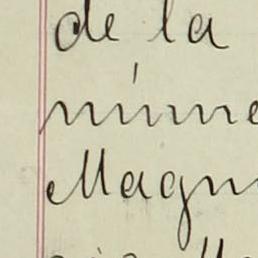 de la
núme
Magn